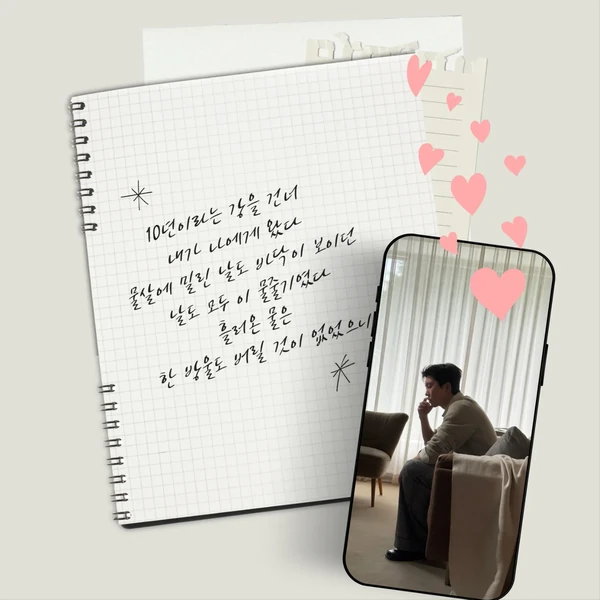 10년이라는 강을 건너
내가 나에게 왔다
물살에 밀린 날도 바닥이 보이던
날도 모두 이 물줄기였다
흘러온 물은
한 방울도 버릴 것이 없었으니